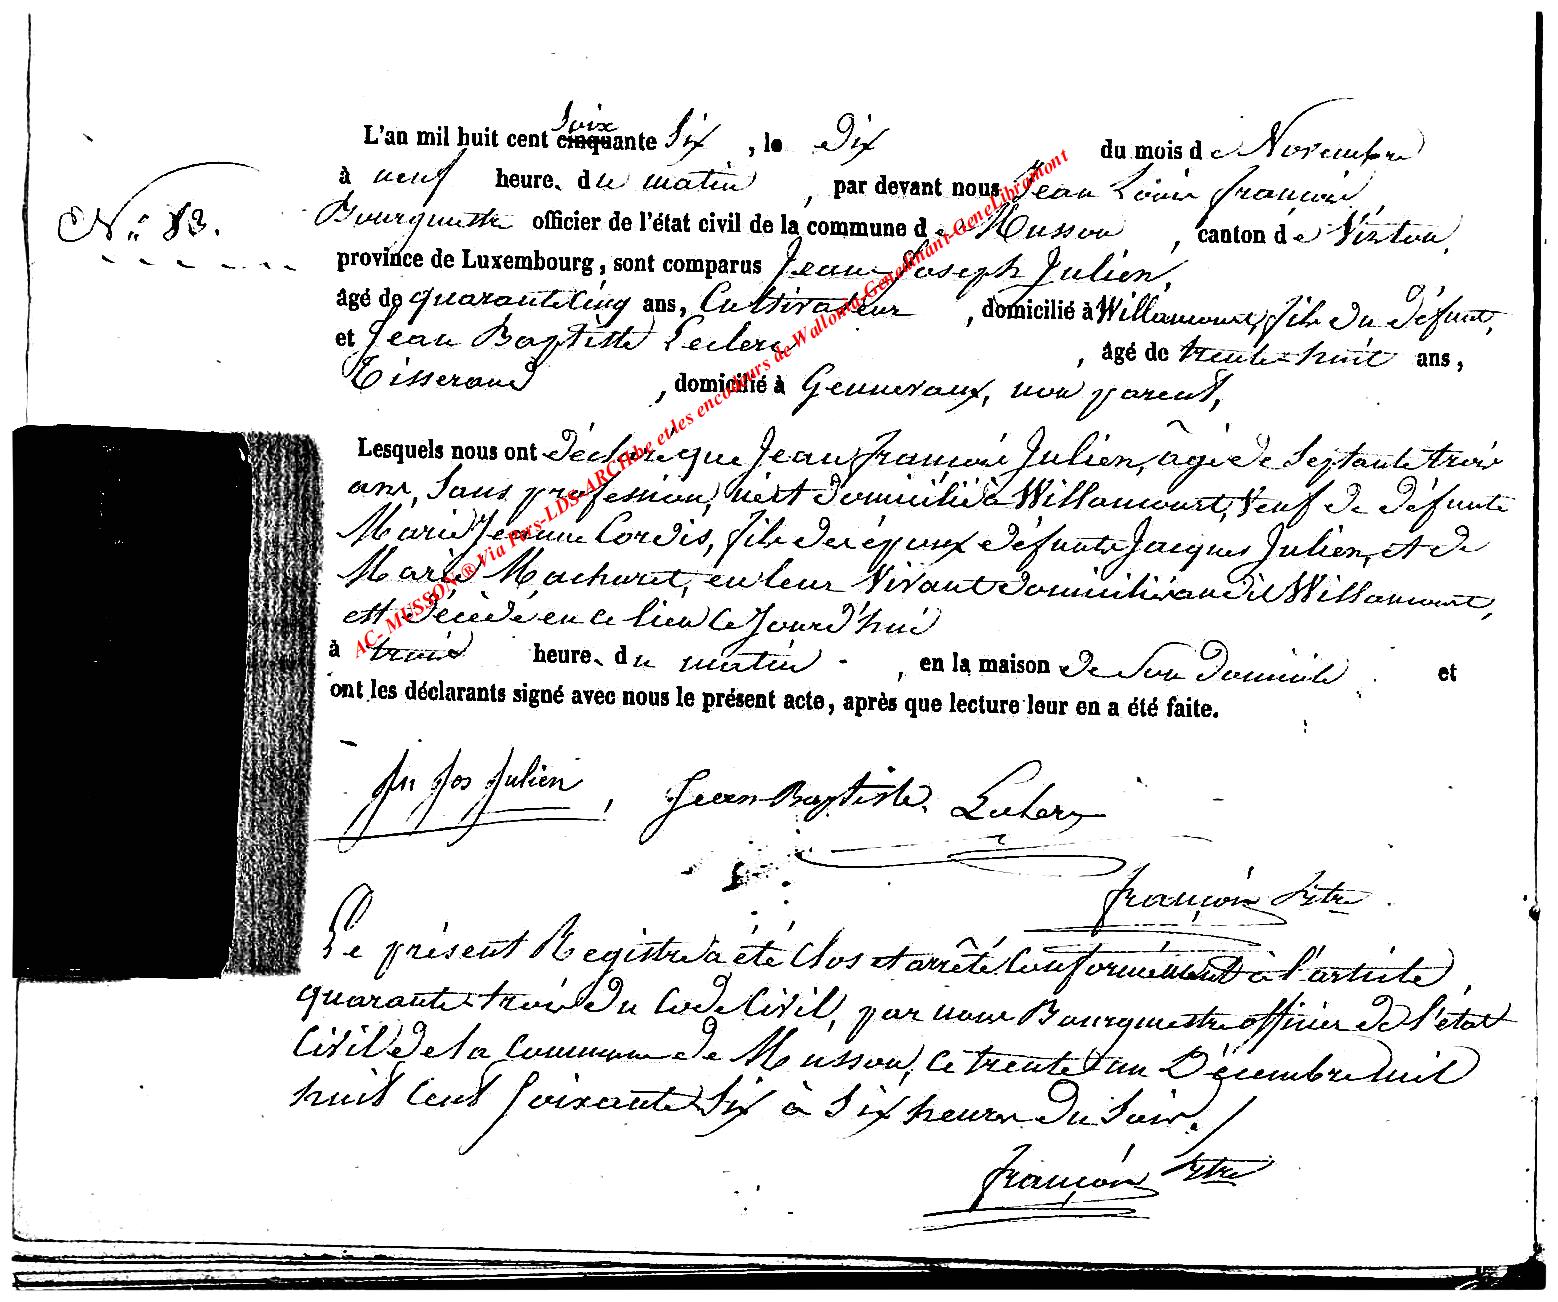 L'an mil huit cent cinquante Soix Six, le Dix du mois de Novembre
à neuf heure. du matin, par devant nous Jean Louis François,
N° 83.
Bourgmestre officier de l'état civil de la commune de Musson, canton de Virton,
province de Luxembourg, sont comparus Jean Joseph Julien,
âgé de quarante cinq ans, Cultivateur, domicilié à Willancourt, fils du défunt,
et Jean Baptiste Leclerc, âgé de trente-huit ans,
Tisserand, domicilié à Gennevaux, non parent,
Lesquels nous ont déclaré que Jean François Julien, âgé de Septante trois
ans, Sans profession, né et domicilié à Willancourt, Veuf de défunte
Marie Jeanne Cordis, fils des époux défunts Jacques Julien, et de
Marie Machuret, en leur Vivant domiciliés audit Willancourt,
est décédé en ce lieu Ce Jourd'hui
à trois heure. du matin, en la maison de Son domicile et
ont les déclarants signé avec nous le présent acte, après que lecture leur en a été faite.
AC- MUSSON ® Via Fers-LDS-ARCH.be et les encodeurs de Wallonia-Genedinant-GeneLibramont
Jn Jos Julien, Jean Baptiste Leclerc
François Bgtre
Le présent Registre a été Clos et arrêté Conformément à l'article
quarante-trois du Code Civil, par nous Bourgmestre officier de l'état
Civil de la Commune de Musson, Ce trente un Décembre mil
huit Cent Soixante Six à Six heures du Soir.
François Bgtre